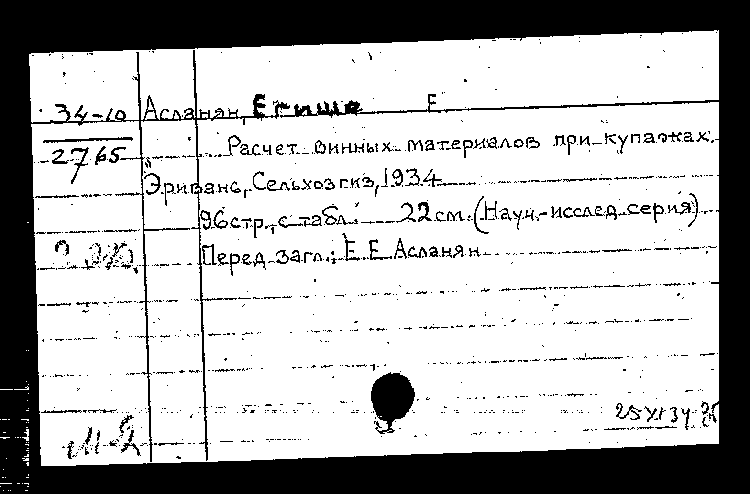 34-10 Асланян, Егише Е.
2765 Расчет винных материалов при купажах.
Эривань, Сельхозгиз, 1934
96 стр., с табл. 22 см. (Науч.-исслед. серия)
Перед загл.: Е Е Асланян
25 XI 34